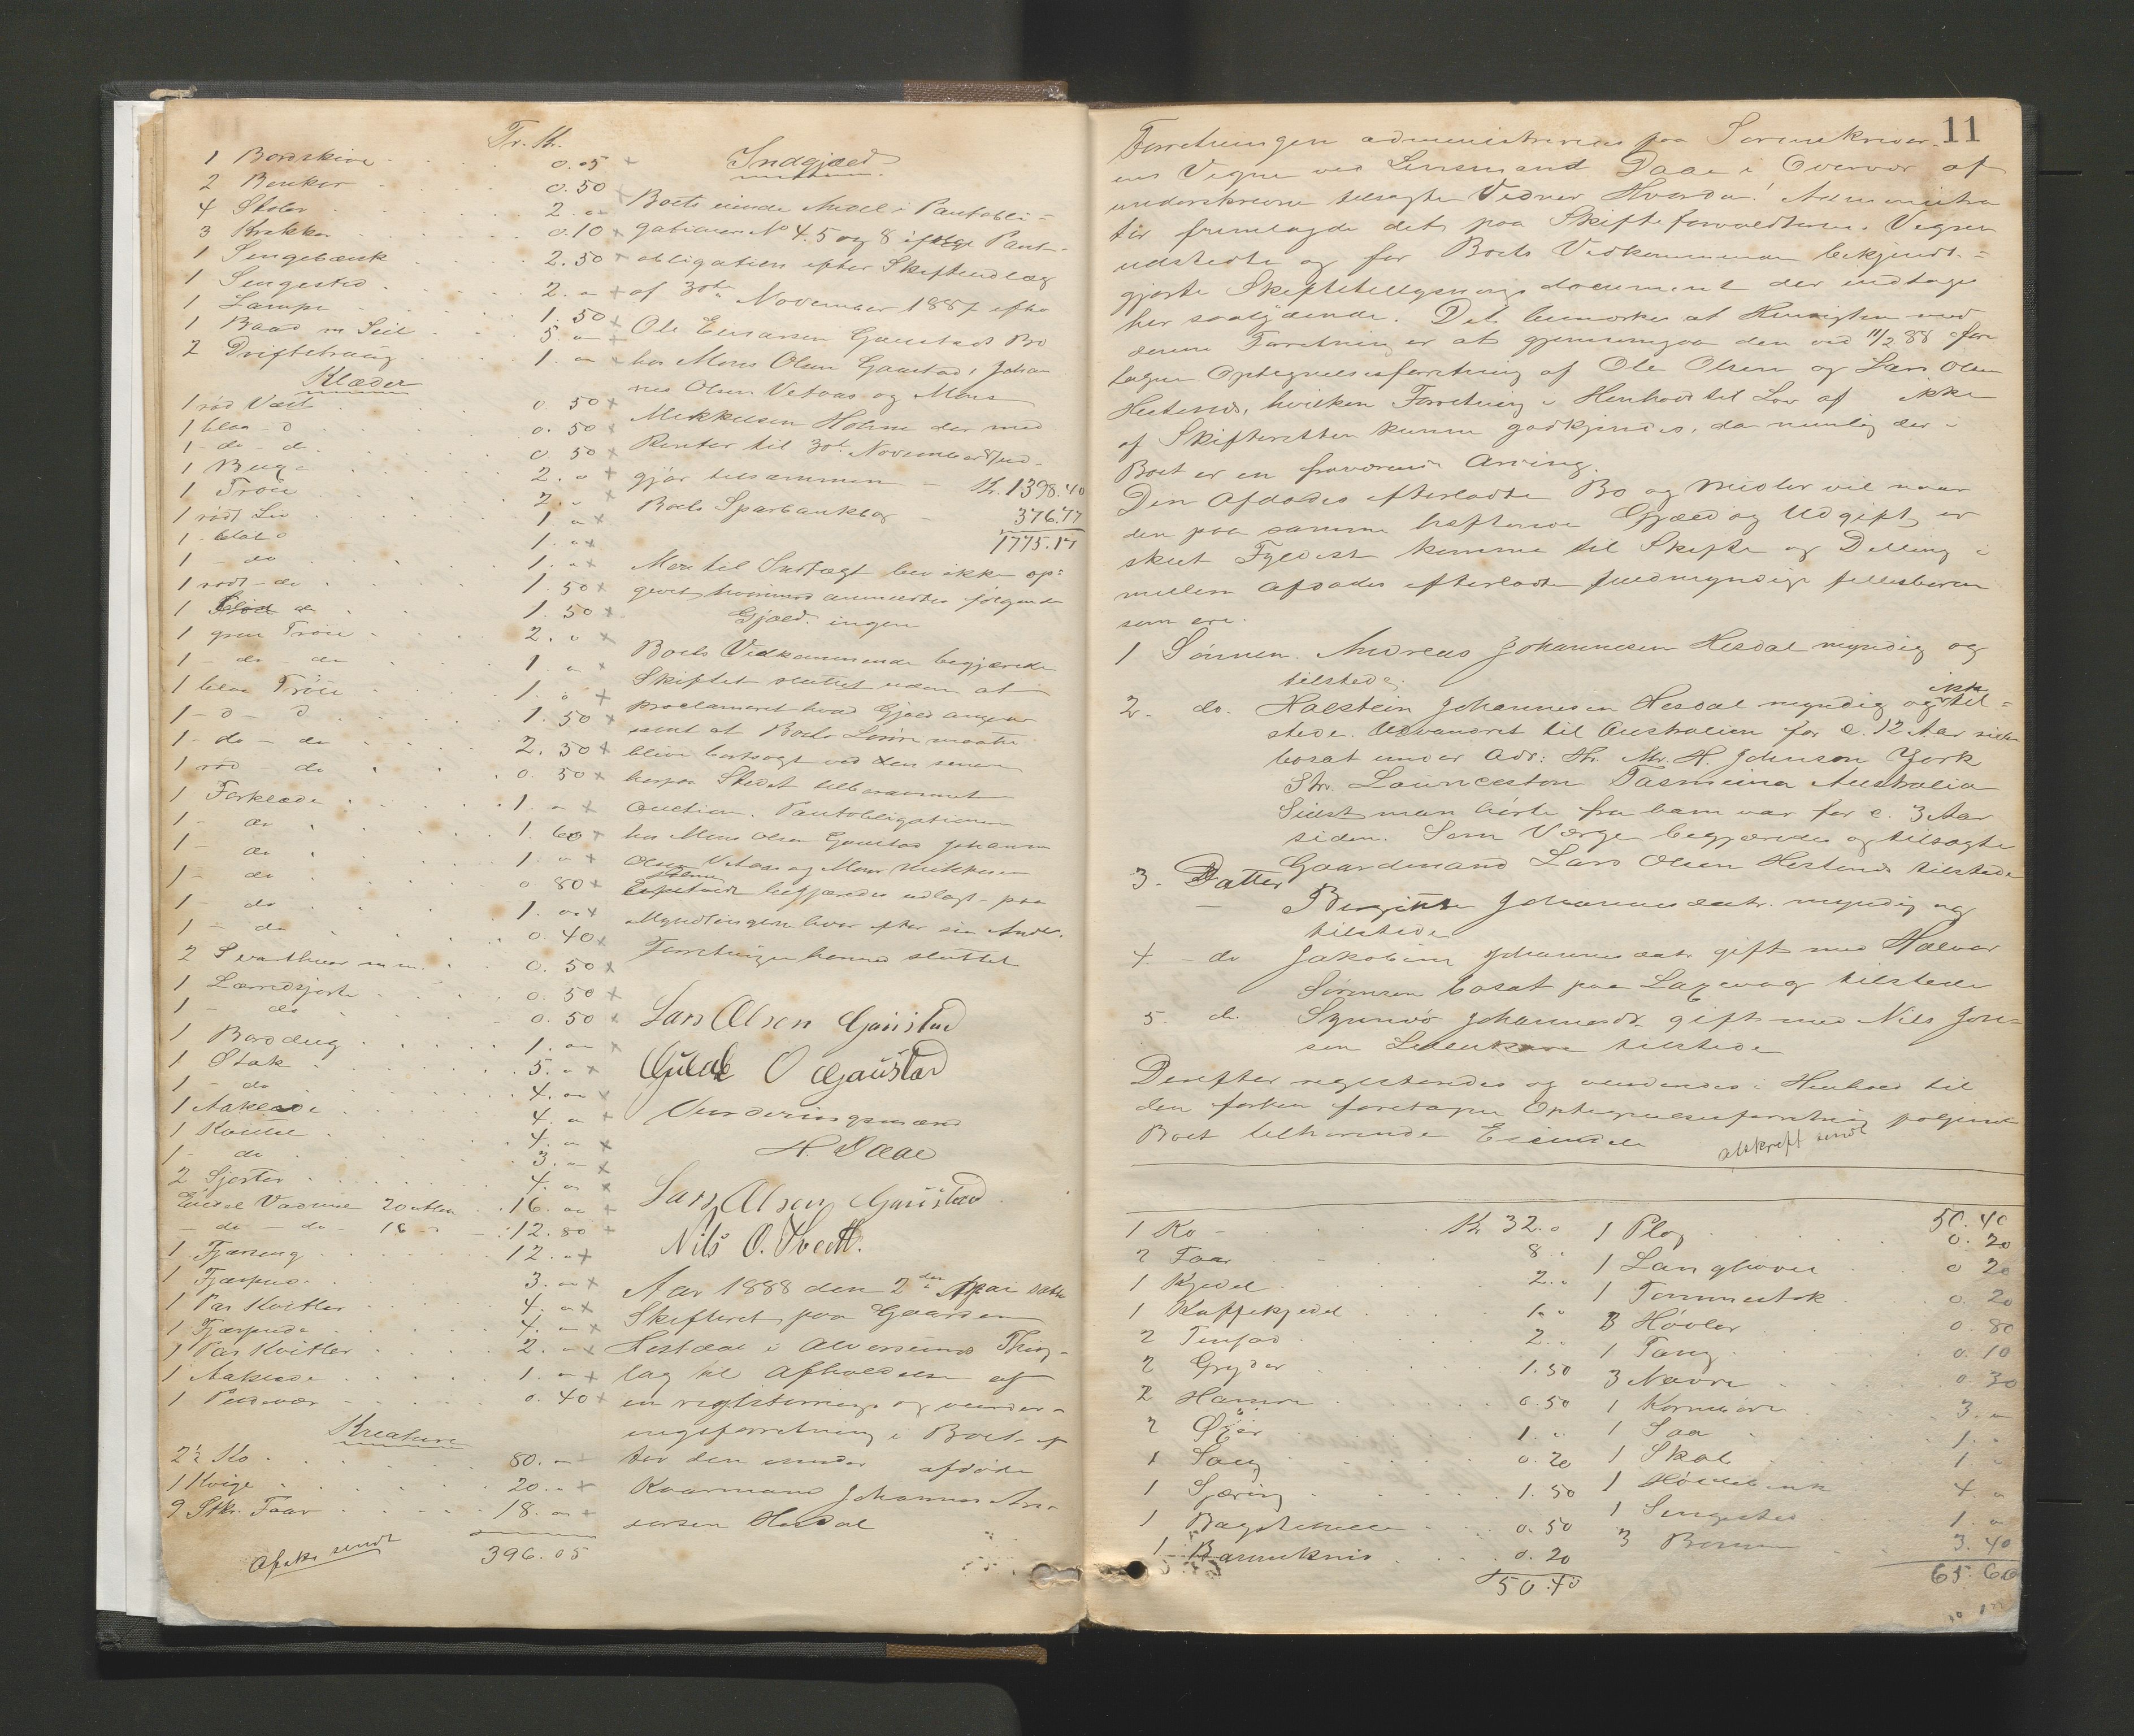 Tr. Kr.
1 Bordskive 0.05
2 Benker 0.50
4 Stoler 2. "
3 Krakker 0.10
1 Sengebænk 2.50
1 Sengested 2. "
1 Lampe 1.50
1 Baad m Seil 5 "
2 Drifteltraug 1. "
Klæder
1 rød Vest 0. 50
1 blaa d 0. 50
1 - do d. 0. 50
1 Buxe 2. "
1 Trøie 2. "
1 rødt Liv 1. "
1 - blat d 1. "
1 - do 1. "
1 rødt - do 1. 50
1 do 1. 50
1 grøn Trøie 2. "
1 - do - do 1. "
1 blaa Trøie 1. "
1 - d - d 1. 50
1 - do - do 2. 50
1 rød - do 0. 50
1 Forklæde 1. "
1 - do 1. 60
1 - do 1. "
1 - do 0 80
1 - do 1. "
1 - do 0. 40
2 Svarthuer m m. 0. 50
1 Lærredsjorte 0. 50
1 - do 0. 50
1 Borddug 1. "
1 Stak 5. "
1 - do 4. "
1 Aaklæde 4. "
1 Kvittel 4. "
1 - do 3. "
2 Sjorter 4. "
Endel Vadmel 20 atlen 16. "
- do - do - 16 - 12. 80
1 Fjærseng 12. "
1 Fjærpude 3. "
1 Par Kvitler 4. "
1 Fjærpude 4. "
1 Par Kvitler 2. "
1 Aaklæde 1. "
1 Pudevær 0. 40
Kreature
2½ Ko 80. "
1 Kvige 20. "
9 Stk. Faar 18. "
396.05
Afskr. sendt
Indgjæld
Boets eiende Andel i Pantobli-
gationer No 4. 5 og 8 ifølge Pant-
obligation efter Skifteudlæg
af 30te November 1887 efter
Ole Einarsen Gaustad Bo
hos Mons Olsen Gaustad, Johan
nes Olsen Vetaas og Mons
Mikkelsen Holme der med
Renter til 30te November 87 ud-
gjør tilsammen - Kr. 1398.40
Boets Sparbankbog - 376.77
1775.17
Mere til Indtægt blev ikke op=
givet hvorimod anmeldtes følgende
Gjæld. ingen
Boets Vedkommende begjærede
Skiftet sluttet uden at
proclameret hvad Gjæld angaar
samt at Boets Løsøre maatte
blive bortsolgt ved den senere
herpaa Stedet tilberammet
Auction. Pantobligationen
hos Mons Olsen Gaustad Johannes
Olsen Vetaas og Mons Mikkelsen
Holme begjæredes udlagt paa
Myndlingene hver efter sin Andel.
Forretningen hermed sluttet
Lars Olsen Gaustad
Gulak O Gaustad
Vurderingsmænd
H. Daae
Lars Olsen Gaustad
Nils O. Tvedt.
Aar 1888 den 2den Mai satte
Skifteret paa Gaarden
Hestdal i Alversunds Thing-
lag til Afholdelse af
en registrerings og vurder-
ingsforretning i Boet ef
ter den under afdøde
Kaarmand Johannes An-
dersen Hesdal
11
Forretningen administreredes paa Sorenskriver
ens Vegne ved Lensmand Daae i Overvær af
underskrevne tilsagte Vidner Hvorda! Administra
tør fremlagde det paa Skifteforvalterens Vegne
udstedte og for Boets Vedkommende bekjendt=
gjorte Skiftetillysningsdocument der indtages
her saalydende. Det bemærkes at Hensigten med
denne Forretning er at gjennemgaa den ved 11/2 88 fore
tagne Optegnelsesforretning af Ole Olsen og Lars Olsen
Hestenes, hvilken Forretning i Henhold til Lov af ikke
af Skifteretten kunne godkjendes, da nemlig der i
Boet er en fraværende Arving.
Den Afdødes efterladte Bo og Midler vil naar
den paa samme heftende Gjæld og Udgift er
skeet Fyldest komme til Skifte og Deeling i
mellem Afdødes efterladte fuldmyndige fællesbørn
som ere.
1 Sønnen. Andreas Johannesen Hesdal myndig og
tilstede.
2. do. Halstein Johannesen Hesdal myndig og ikke til=
stede. Udvandret til Australien for c. 12 Aar siden
bosat under Adr: Hr. Mr. H. Johnson York
Str. Launceston Tasmeina Australia
Sidst man hørte fra ham var for c. 3 Aar
siden. Som Værge begjæredes og tilsagte
Gaardmand Lars Olsen Hestenes tilstede
3. Datter Bergitte Johannesdatr. myndig og
tilstede
4. - do Jakobine Johannesdatr gift med Halvor
Sørensen bosat paa Laxevaag tilstede
5. do. Synnøve Johannesdr. gift med Nils Jon=
sen tilstede
Derefter registreredes og vurderedes i Henhold til
den forhen foretagne Optegnelsesforretning følgende
Boet tilhørende Eiendele
Afskrift sendt
1 Ko Kr 32. "
2 Faar 8. "
1 Kjedel 2. "
1 Kaffekjedel 1. "
2 Tenfad 2. "
2 Gryder 1.50
2 Hamre 0.50
2 Øxer 1. "
1 Saug 0.20
1 Spæring 1.50
1 Bagstehelle 0.50
1 Barmeknif 0.20
50.40
50.40
1 Plog 0. 20
1 Langhøvel 0 20
1 Tommestok 0. 20
8 Høvler 0. 80
1 Tang 0. 10
3 Navre 0. 30
1 Kornskovl 3. "
1 Saa 1. "
1 Skab 1. "
1 Høvelbenk 4. "
1 Sengested 1. "
3 3. 40
65. 60